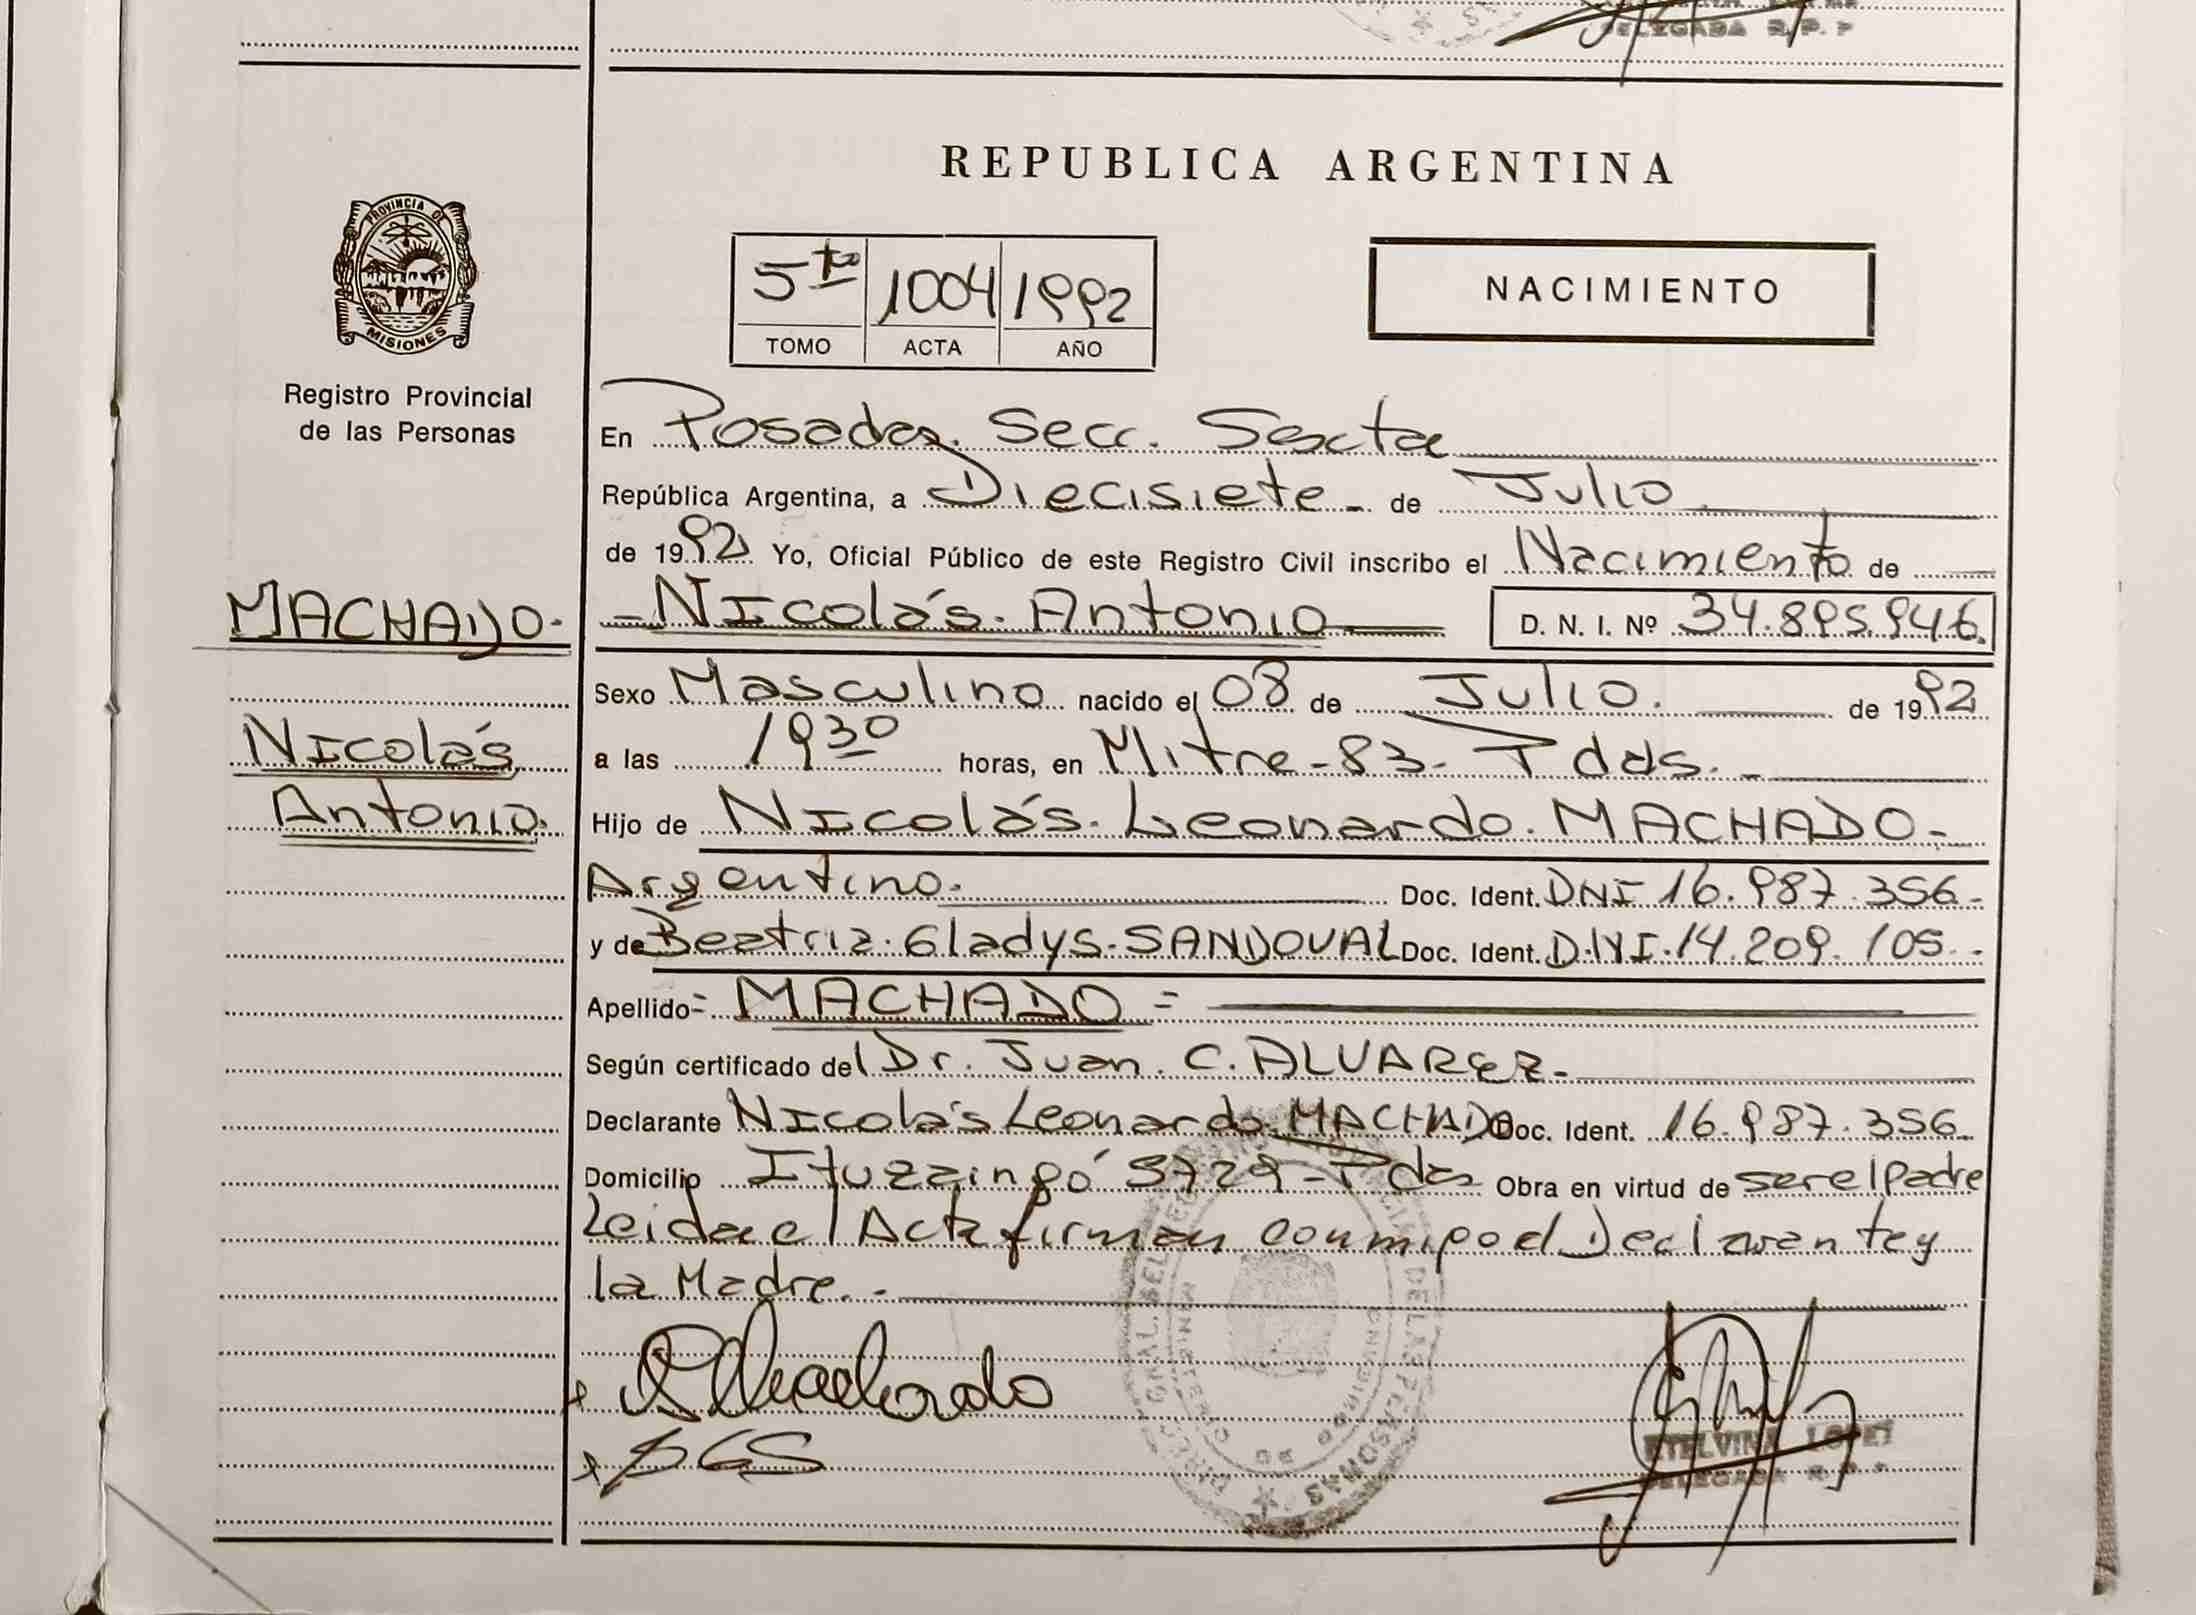 DELEGADA R.P.P
REPUBLICA ARGENTINA
PROVINCIA DE
MISIONES
5to 1004 1992
TOMO ACTA AÑO
NACIMIENTO
Registro Provincial
de las Personas
En Posadas. Secc. Sexta
República Argentina, a Diecisiete - de Julio
de 1992 Yo, Oficial Público de este Registro Civil inscribo el Nacimiento de
MACHADO.
- Nicolás. Antonio D. N. I. Nº 34.895.946.
Sexo Masculino nacido el 08 de Julio. de 1992
Nicolás
Antonio.
a las 1930 horas, en Mitre - 83 - Pdas. -
Hijo de Nicolás. Leonardo. MACHADO -
Argentino. Doc. Ident. DNI 16.987.356 -
y de Beatriz. Gladys. SANDOVAL Doc. Ident. D.N.I. 14.209.105 -
Apellido = MACHADO =
Según certificado del Dr. Juan. C. ALVAREZ -
Declarante Nicolás Leonardo MACHADO Doc. Ident. 16.987.356
Domicilio Ituzaingó 3729 - Pdas Obra en virtud de ser el padre
Leida el Acta firman conmigo el Declarante y
la Madre. -
x Machado
x BGS
ETELVINA LOPEZ
DELEGADA R.P.P